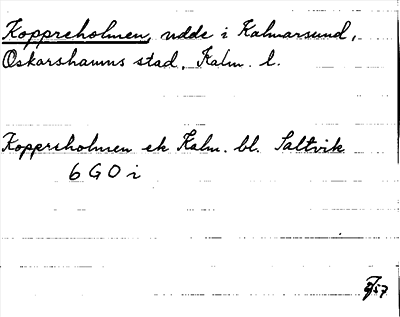 Koppreholmen, udde i Kalmarsund,
Oskarshamns stad, Kalm. l.
Kopparholmen ek Kalm. bl. Saltvik
6 G O i